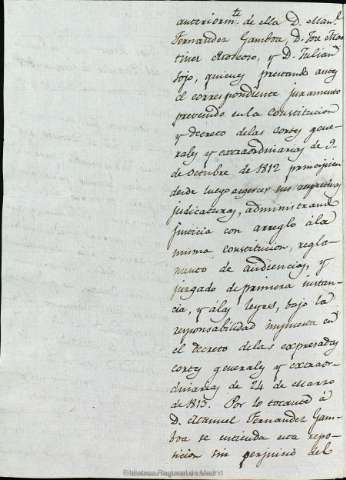 anteriorm.te de ella D. Man.l
Fernandez Gamboa, D. Jose Mar
tinez Moscoso, y D. Julian
Sojo, quienes prestando antes
el correspondiente juramento
prevenido en la Constitucion
y decreto de las cortes gene-
rales y extraordinarias de 9.
de Octubre de 1812 principien
desde luego a ejercer sus respectivas
judicaturas, administrando
Justicia con arreglo à la
misma constitucion, regla-
mento de audiencias, y
juzgado de primera instan-
cia, y á las leyes, bajo la
responsabilidad impuesta en
el decreto de las expresadas
cortes generales y extraor-
dinarias de 24 de Marzo
de 1813. Por lo tocante á
D. Manuel Fernandez Gam-
boa se entienda esta repo-
sicion sin perjuicio del
Biblioteca Regional de Madrid